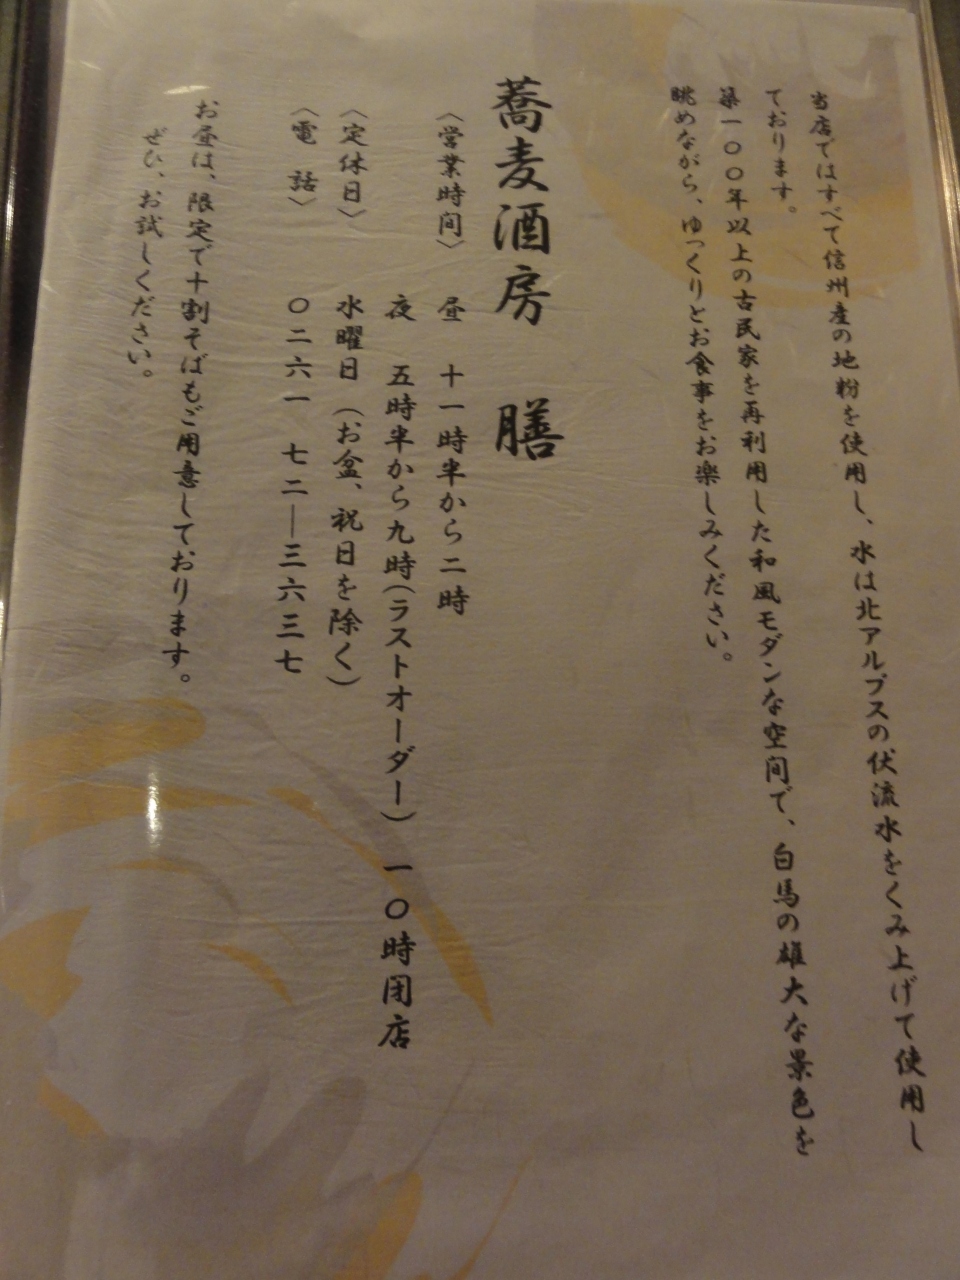 当店ではすべて信州産の地粉を使用し、水は北アルプスの伏流水をくみ上げて使用し
ております。
築一〇〇年以上の古民家を再利用した和風モダンな空間で、白馬の雄大な景色を
眺めながら、ゆっくりとお食事をお楽しみください。
蕎麦酒房 膳
〈営業時間〉 昼 十一時半から二時
夜 五時半から九時(ラストオーダー) 一〇時閉店
〈定休日〉 水曜日 (お盆、祝日を除く)
〈電 話〉 〇二六一 七二―三六三七
お昼は、限定で十割そばもご用意しております。
ぜひ、お試しください。